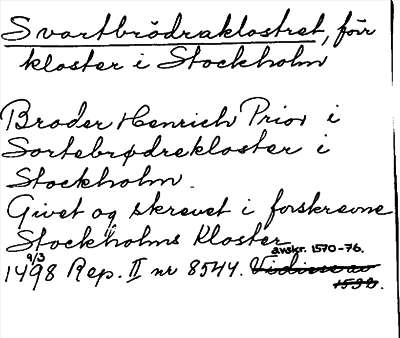 Svartbrödraklostret, för
kloster i Stockholm
Broder Henrich Prior i
Sortebrødrekloster i
Stockholm.
Givet og skrevet i forskrevne
Stockholms Kloster
anskr. 1570-76.
9/3
1498 Rep. II nr 8544. Vidisse av
1592.